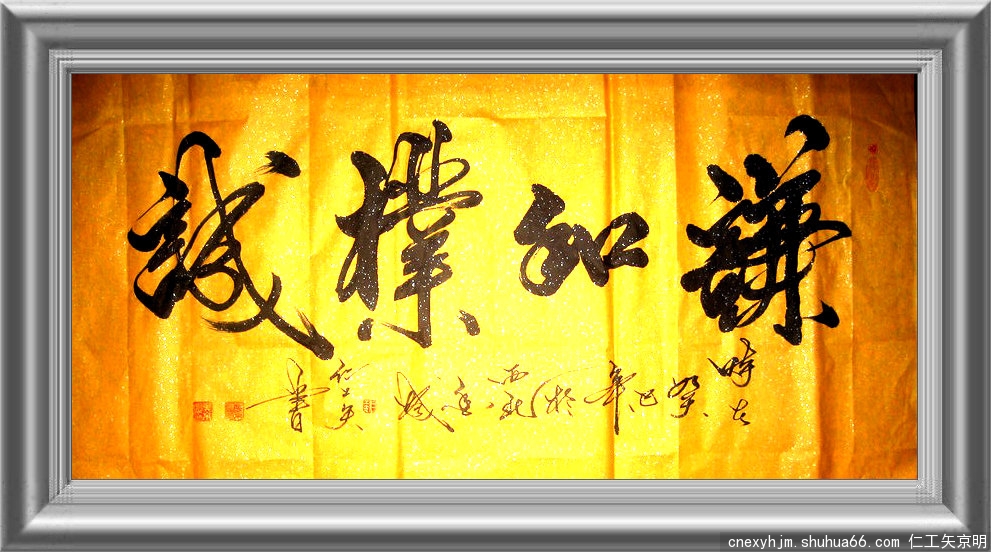 謙和樸誠
時在癸巳年於西
仁工矢書
cnexyhjm.shuhua66.com 仁工矢京明